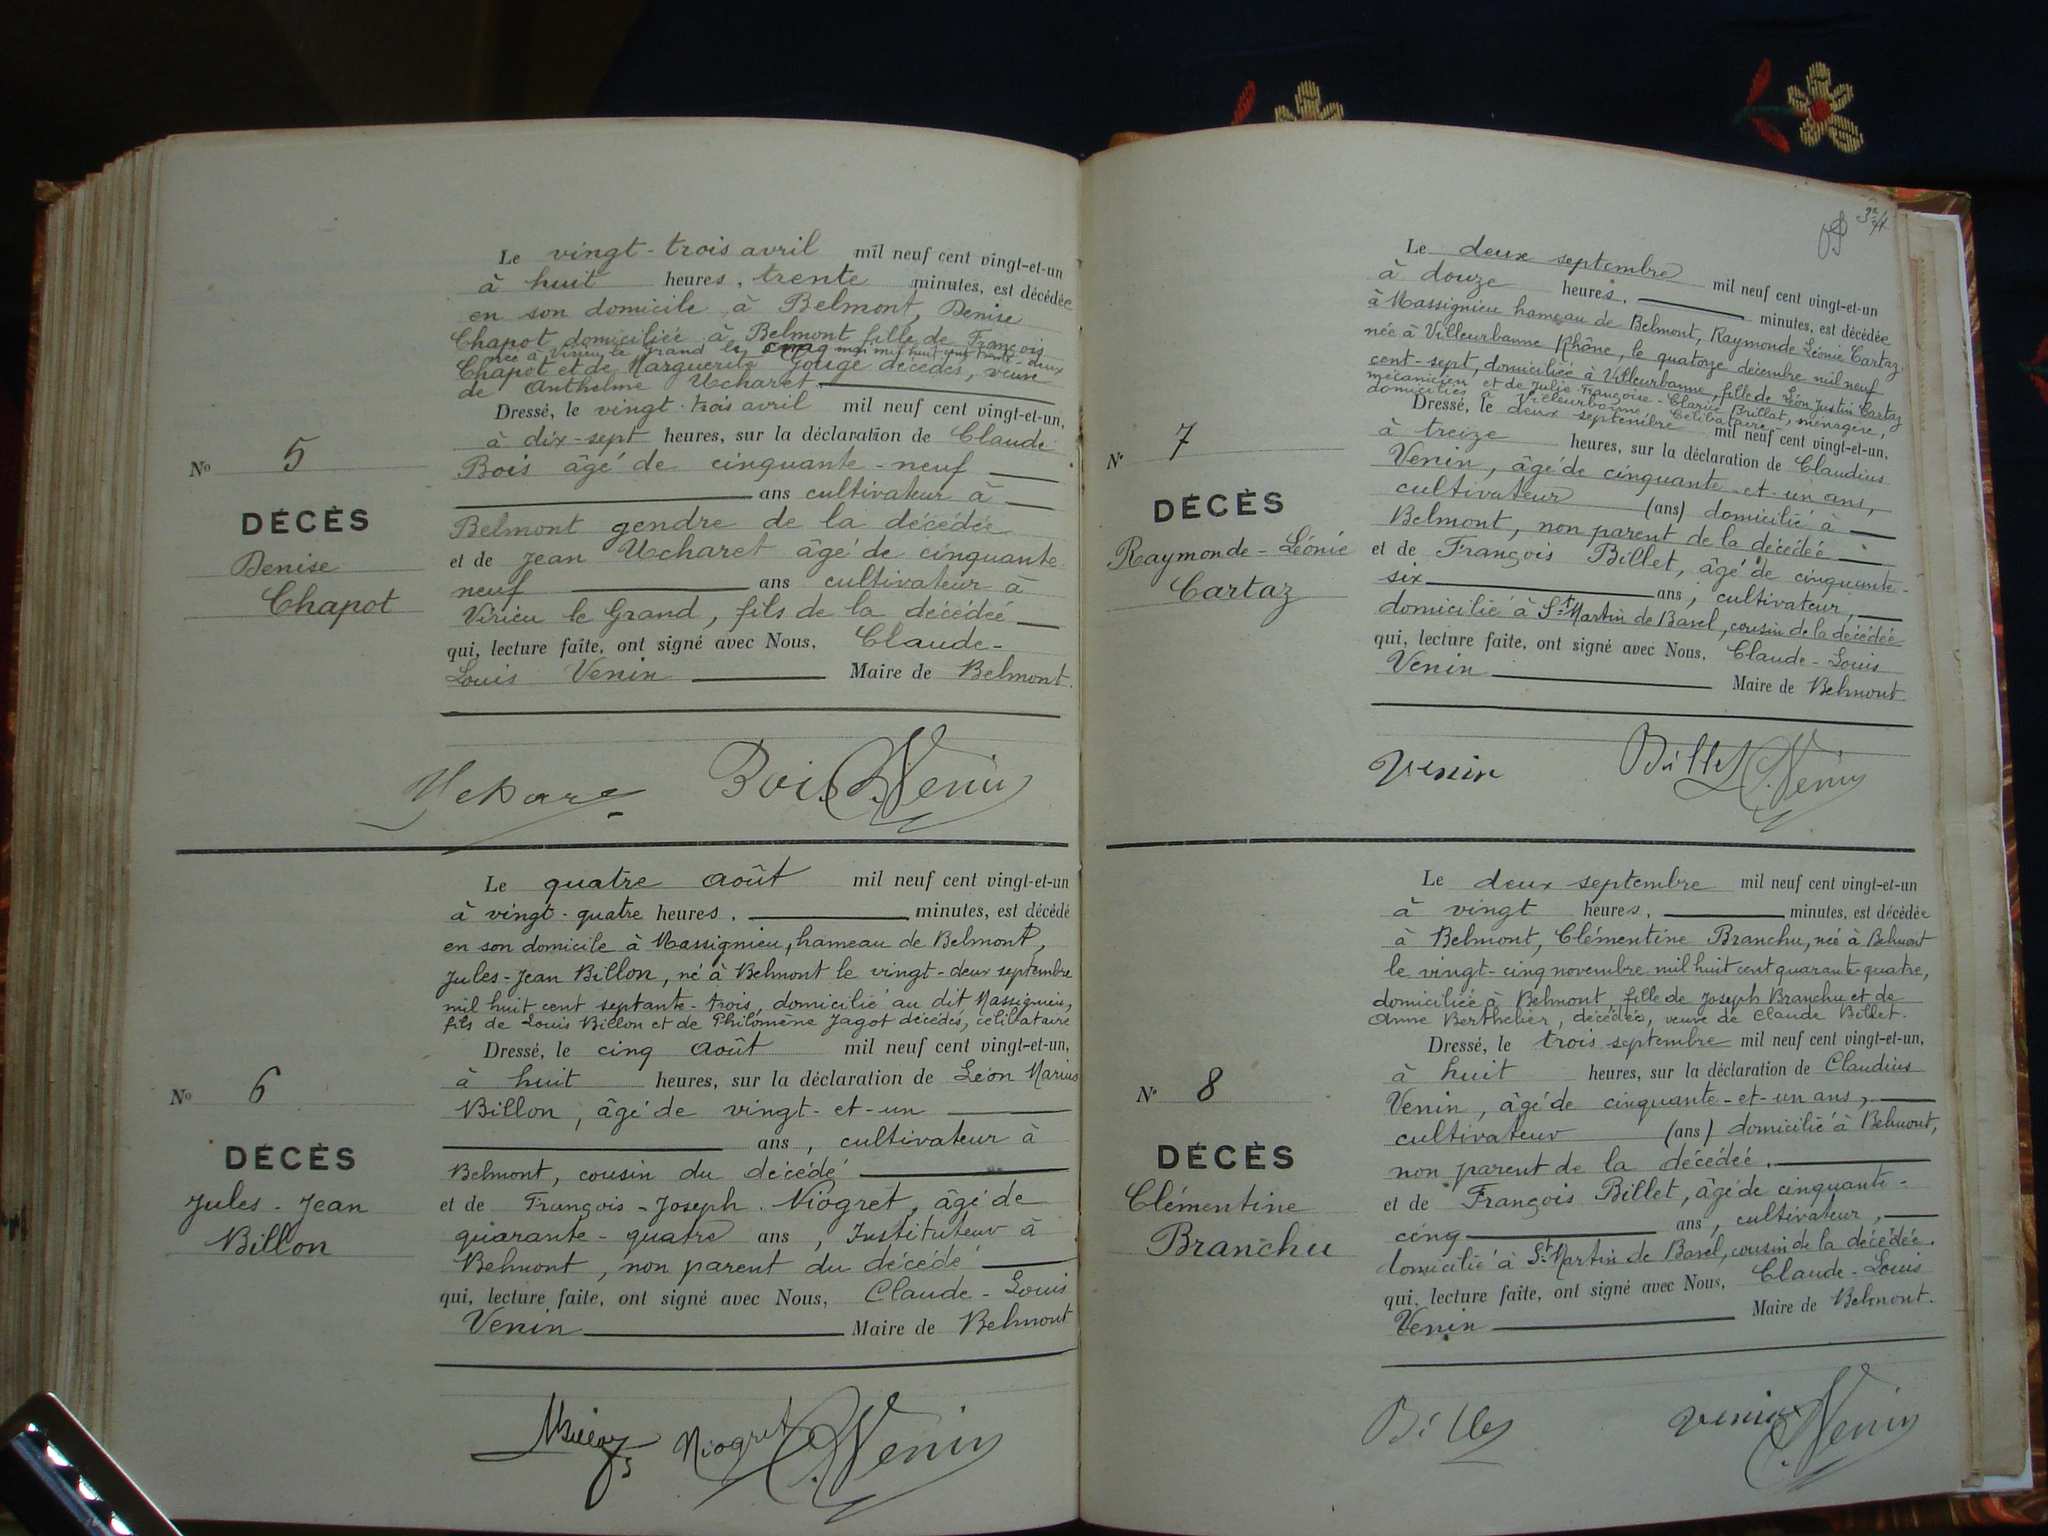 Le vingt-trois avril mil neuf cent vingt-et-un
à huit heures, trente minutes, est décédée
en son domicile à Belmont, Denise
Chapot domiciliée à Belmont fille de François
née à Virieu le grand le cinq mai mil huit cent trente-deux
Chapot et de Marguerite Gouge décédés, veuve
de Anthelme Ucharet
Dressé, le vingt-trois avril mil neuf cent vingt-et-un,
à dix-sept heures, sur la déclaration de Claude
No 5
Bois âgé de cinquante-neuf
ans cultivateur à
DÉCÈS
Belmont gendre de la décédée
Denise
et de Jean Ucharet âgé de cinquante
Chapot
neuf ans cultivateur à
Virieu le Grand, fils de la décédée
qui, lecture faite, ont signé avec Nous, Claude-
Louis Venin Maire de Belmont.
Bois C. Venin
Le quatre août mil neuf cent vingt-et-un
à vingt-quatre heures, minutes, est décédé
en son domicile à Massignieu, hameau de Belmont,
Jules-Jean Billon, né à Belmont le vingt-deux septembre
mil huit cent septante-trois, domicilié au dit Massignieu,
fils de Louis Billon et de Philomène Jagot décédés, célibataire
Dressé, le cinq août mil neuf cent vingt-et-un,
à huit heures, sur la déclaration de Léon Marius
No 6
Billon, âgé de vingt-et-un
ans, cultivateur à
DÉCÈS
Belmont, cousin du décédé
Jules-Jean
et de François-Joseph Niogret, âgé de
Billon
quarante-quatre ans, Instituteur à
Belmont, non parent du décédé
qui, lecture faite, ont signé avec Nous, Claude-Louis
Venin Maire de Belmont
Niogret C. Venin
Le deux septembre mil neuf cent vingt-et-un
à douze heures, minutes, est décédée
à Massignieu hameau de Belmont, Raymonde Léonie Cartaz
née à Villeurbanne Rhône, le quatorze décembre mil neuf
cent-sept, domiciliée à Villeurbanne, fille de Léon Justin Cartaz
mécanicien et de Julie Françoise-Clarice Brillat, ménagère,
domiciliés à Villeurbanne Célibataire
Dressé, le deux septembre mil neuf cent vingt-et-un,
à treize heures, sur la déclaration de Claudius
No 7
Venin, âgé de cinquante-et-un ans,
cultivateur (ans) domicilié à
DÉCÈS
Belmont, non parent de la décédée
Raymonde-Léonie
et de François Billet, âgé de cinquante-
Cartaz
six ans, cultivateur,
domicilié à St Martin de Bavel, cousin de la décédée
qui, lecture faite, ont signé avec Nous, Claude-Louis
Venin Maire de Belmont
Venin Billet C. Venin
Le deux septembre mil neuf cent vingt-et-un
à vingt heures, minutes, est décédée
à Belmont, Clémentine Branchu, née à Belmont
le vingt-cinq novembre mil huit cent quarante-quatre,
domiciliée à Belmont, fille de Joseph Branchu et de
Anne Berthelier, décédés, veuve de Claude Billet.
Dressé, le trois septembre mil neuf cent vingt-et-un,
à huit heures, sur la déclaration de Claudius
No 8
Venin, âgé de cinquante-et-un ans,
cultivateur (ans) domicilié à Belmont,
DÉCÈS
non parent de la décédée.
Clémentine
et de François Billet, âgé de cinquante-
Branchu
cinq ans, cultivateur,
domicilié à St Martin de Bavel, cousin de la décédée.
qui, lecture faite, ont signé avec Nous, Claude-Louis
Venin Maire de Belmont.
Billet Venin C. Venin